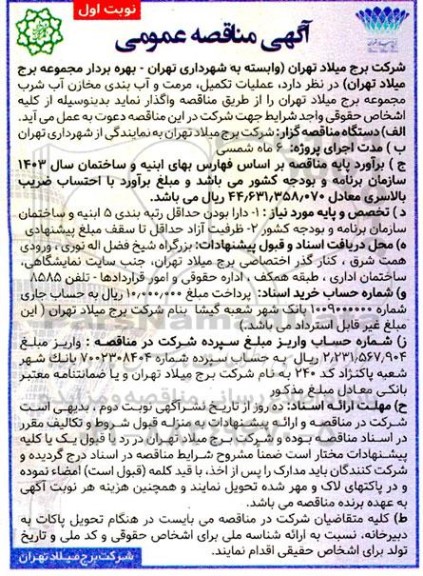 نوبت اول
آگهی مناقصه عمومی
شرکت برج میلاد تهران (وابسته به شهرداری تهران - بهره بردار مجموعه برج
میلاد تهران) در نظر دارد، عملیات تکمیل، مرمت و آب بندی مخازن آب شرب
مجموعه برج میلاد تهران را از طریق مناقصه واگذار نماید بدینوسیله از کلیه
اشخاص حقوقی واجد شرایط جهت شرکت در این مناقصه دعوت به عمل می آید.
الف) دستگاه مناقصه گزار: شرکت برج میلاد تهران به نمایندگی از شهرداری تهران
ب ) مدت اجرای پروژه: ۶ ماه شمسی
ج ) برآورد پایه مناقصه بر اساس فهارس بهای ابنیه و ساختمان سال ۱۴۰۳
سازمان برنامه و بودجه کشور می باشد و مبلغ برآورد با احتساب ضریب
بالاسری معادل ۴۴,۶۳۱,۳۵۸,۰۷۰ ریال می باشد.
د ) تخصص و پایه مورد نیاز : ۱- دارا بودن حداقل رتبه بندی ۵ ابنیه و ساختمان
سازمان برنامه و بودجه کشور ۲- ظرفیت آزاد حداقل تا سقف مبلغ پیشنهادی
ه) محل دریافت اسناد و قبول پیشنهادات: بزرگراه شیخ فضل اله نوری ، ورودی
همت شرق ، کنار گذر اختصاصی برج میلاد تهران، جنب سایت نمایشگاهی،
ساختمان اداری ، طبقه همکف ، اداره حقوقی و امور قراردادها - تلفن ۸۵۸۵
و) شماره حساب خرید اسناد: پرداخت مبلغ ۱۰,۱۰۰,۰۰۰ ریال به حساب جاری
شماره ۱۰۰۹۰۰۰۰۰۰ بانک شهر شعبه گیشا بنام شرکت برج میلاد تهران ( این
مبلغ غیر قابل استرداد می باشد.)
ز) شماره حساب واریز مبلغ سپرده شرکت در مناقصه : واریز مبلغ
۲,۲۳۱,۵۶۷,۹۰۴ ریال به حساب سپرده شماره ۷۰۰۲۳۰۸۴۰۴ بانک شهر
شعبه پاکنژاد کد ۲۴۰ به نام شرکت برج میلاد تهران و یا ضمانتنامه معتبر
بانکی معادل مبلغ مذکور
ح) مهلت ارائه اسناد: ده روز از تاریخ نشر آگهی نوبت دوم . بدیهی است
شرکت در مناقصه و ارائه پیشنهادات به منزله قبول شروط و تکالیف مقرر
در اسناد مناقصه بوده و شرکت برج میلاد تهران در رد یا قبول یک یا کلیه
پیشنهادات مختار است ضمناً مشروح شرایط مناقصه در اسناد درج گردیده و
شرکت کنندگان باید مدارک را پس از اخذ، با قید کلمه (قبول است) امضاء نموده
و در پاکتهای لاک و مهر شده تحویل نمایند و همچنین هزینه هر نوبت آگهی
به عهده برنده مناقصه می باشد.
ط) کلیه متقاضیان شرکت در مناقصه می بایست در هنگام تحویل پاکات به
دبیرخانه، نسبت به ارائه شناسه ملی برای اشخاص حقوقی و کد ملی و تاریخ
تولد برای اشخاص حقیقی اقدام نمایند.
شرکت برج میلاد تهران